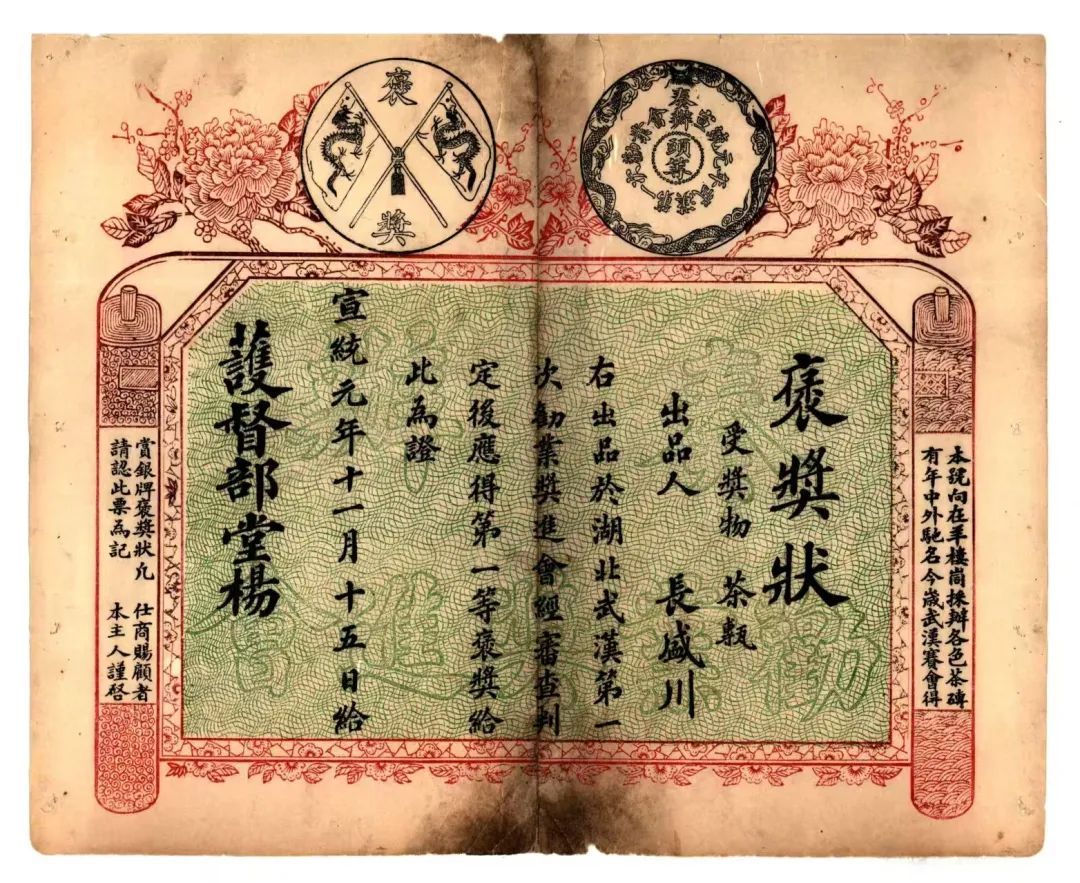 褒獎
奏辦
頭等
褒獎狀
受獎物 茶甎
出品人 長盛川
右出品於湖北武漢第一
次勧業獎進會經審查判
定後應得第一等褒獎給
此為證
宣統元年十一月十五日給
護督部堂楊
本號向在羊樓峝採辦各色茶磚
有年中外馳名今歲武漢賽會得
賞銀牌褒獎狀凢 仕商賜顧者
請認此票為記 本主人謹啓